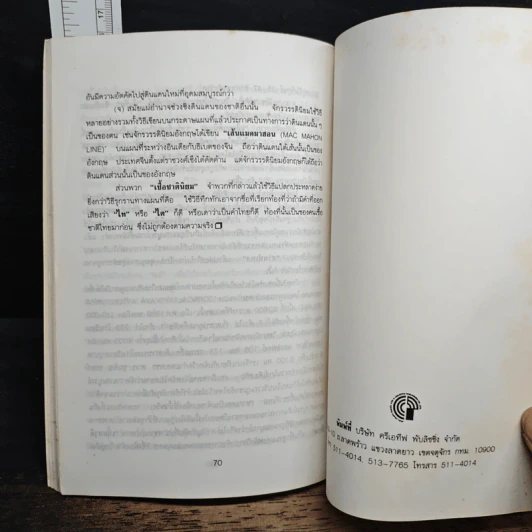 อันมีความอัตคัดไปสู่ดินแดนใหม่ที่อุดมสมบูรณ์กว่า
(จ) สมัยแผ่อำนาจช่วงชิงดินแดนของชาติอื่นนั้น จักรวรรดินิยมใช้วิธี
หลายอย่างรวมทั้งวิธีเขียนบนกระดาษแผนที่แล้วประกาศเป็นทางการว่าดินแดนนั้น ๆ
เป็นของตน เช่นจักรวรรดินิยมอังกฤษได้เขียน "เส้นแมคมาฮอน (MAC MAHON
LINE)" บนแผนที่ระหว่างอินเดียกับธิเบตของจีน ถือว่าดินแดนใต้เส้นนั้นเป็นของ
อังกฤษ ประเทศจีนตั้งแต่ราชวงศ์เช็งได้คัดค้าน แต่จักรวรรดินิยมอังกฤษก็ได้ถือว่า
ดินแดนส่วนนั้นเป็นของอังกฤษ
ส่วนพวก "เชื้อชาตินิยม" จำพวกที่กล่าวแล้วใช้วิธีแปลกประหลาดร้าย
ยิ่งกว่าวิธีรุกรานทางแผนที่คือ ใช้วิธีทึกทักเอาจากชื่อที่เรียกท้องที่ว่าถ้ามีคำที่ออก
เสียงว่า "ไท" หรือ "ไต" ก็ดี หรือเดาว่าเป็นคำไทยก็ดี ท้องที่นั้นเป็นของคนเชื้อ
ชาติไทยมาก่อน ซึ่งไม่ถูกต้องตามความจริง
70
17
พิมพ์ที่ บริษัท ครีเอทีฟ พับลิชชิ่ง จำกัด
ถ.ลาดพร้าว แขวงลาดยาว เขตจตุจักร กทม. 10900
511-4014, 513-7765 โทรสาร 511-4014